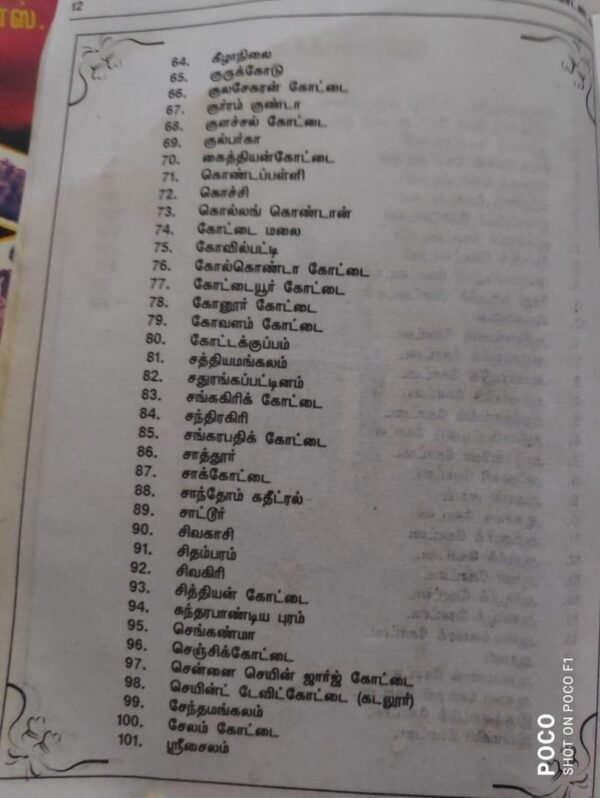 12
64. கீழாநிலை
65. குருக்கோடு
66. குலசேகரன் கோட்டை
67. குர்ரம் குண்டா
68. குளச்சல் கோட்டை
69. குல்பர்கா
70. கைத்தியன்கோட்டை
71. கொண்டப்பள்ளி
72. கொச்சி
73. கொல்லங் கொண்டான்
74. கோட்டை மலை
75. கோவில்பட்டி
76. கோல்கொண்டா கோட்டை
77. கோட்டையூர் கோட்டை
78. கோனூர் கோட்டை
79. கோவளம் கோட்டை
80. கோட்டக்குப்பம்
81. சத்தியமங்கலம்
82. சதுரங்கப்பட்டினம்
83. சங்ககிரிக் கோட்டை
84. சந்திரகிரி
85. சங்கரபதிக் கோட்டை
86. சாத்தூர்
87. சாக்கோட்டை
88. சாந்தோம் கதீட்ரல்
89. சாட்டூர்
90. சிவகாசி
91. சிதம்பரம்
92. சிவகிரி
93. சித்தியன் கோட்டை
94. சுந்தரபாண்டிய புரம்
95. செங்கண்மா
96. செஞ்சிக்கோட்டை
97. சென்னை செயின் ஜார்ஜ் கோட்டை
98. செயின்ட் டேவிட்கோட்டை (கடலூர்)
99. சேந்தமங்கலம்
100. சேலம் கோட்டை
101. ஸ்ரீசைலம்
POCO
SHOT ON POCO F1